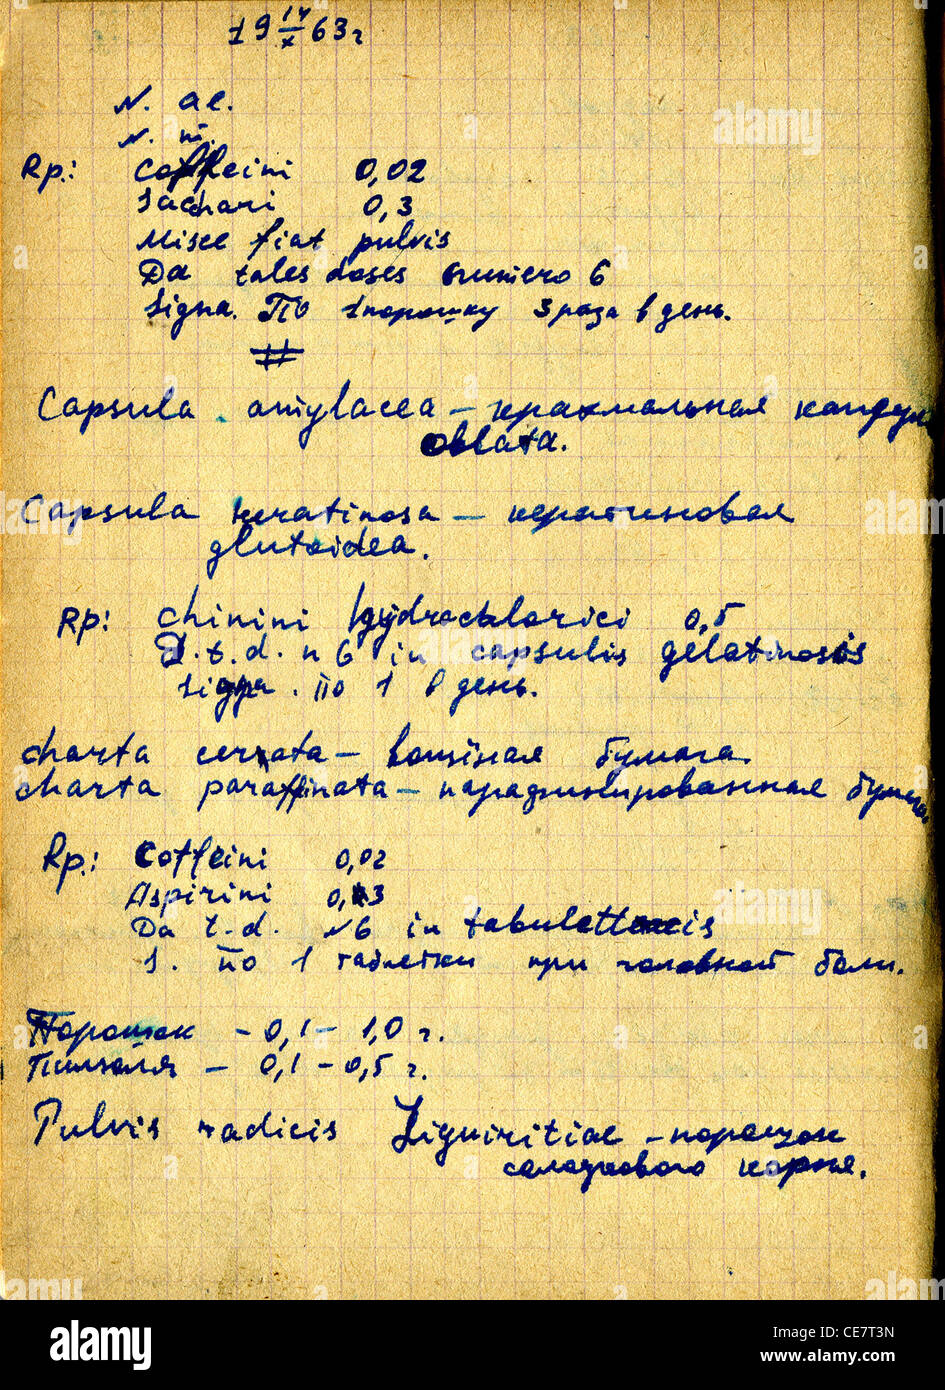 19 IV/X 63 г
N. ac.
N. m.
Rp.: Coffeini 0,02
Sachari 0,3
Misce fiat pulvis
Da tales doses numero 6
Signa. По 1 порошку 3 раза в день.
#
Capsula amylacea – крахмальная капсул
oblata.
Capsula keratinosa – кератиновая
glutoidea.
Rp: Chinini hydrochlorici 0,5
D.t.d. n 6 in capsulis gelatinosis
Signa. По 1 в день.
charta cerata – вощеная бумага
charta paraffinata – парафинированная бумага
Rp.: Coffeini 0,02
Aspirini 0,3
Da t.d. N6 in tabulettis
S. По 1 таблетки при головной боли.
Порошок – 0,1 – 1,0 г.
Пилюля – 0,1 – 0,5 г.
Pulvis radicis Liquiritiae – порошок
солодкового корня.
alamy
Image ID: CE7T3N
www.alamy.com